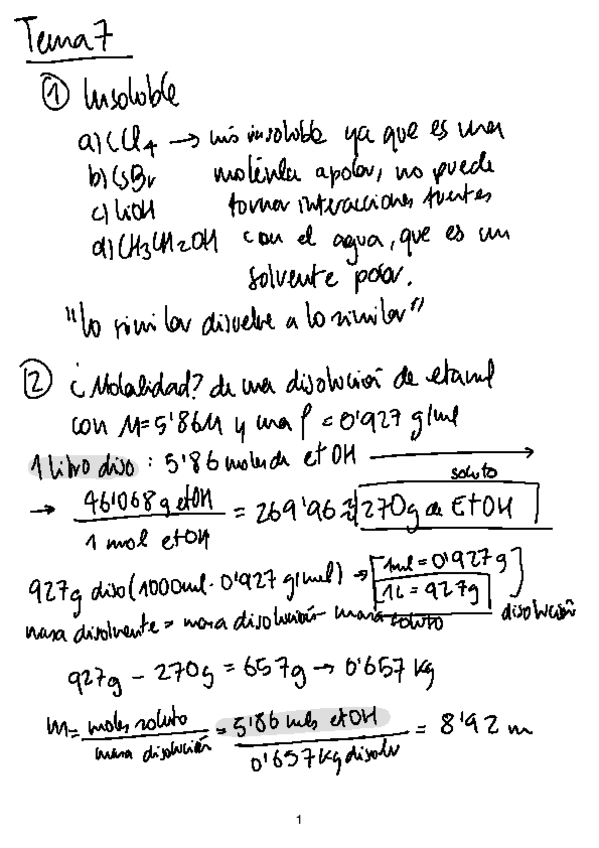 Tema 7
① Insoluble
a) CCl4 → más insoluble ya que es una
b) CsBr molécula apolar, no puede
c) LiOH formar interacciones fuertes
d) CH3CH2OH con el agua, que es un
solvente polar.
"Lo similar disuelve a lo similar"
② ¿Molalidad? de una disolución de etanol
con M=5'86M y una ρ = 0'927 g/ml
1 litro diso : 5'86 moles de etOH →
→ 46'068 g etOH / 1 mol etOH = 269'96 ≈ 270g de EtOH soluto
927g diso (1000ml · 0'927 g/ml) → [1ml = 0'927g
1L = 927g] disolución
masa disolvente = masa disolución - masa soluto
927g - 270g = 657g → 0'657 kg
m = moles soluto / masa disolución = 5'86 mols etOH / 0'657 kg disolv = 8'92 m
1